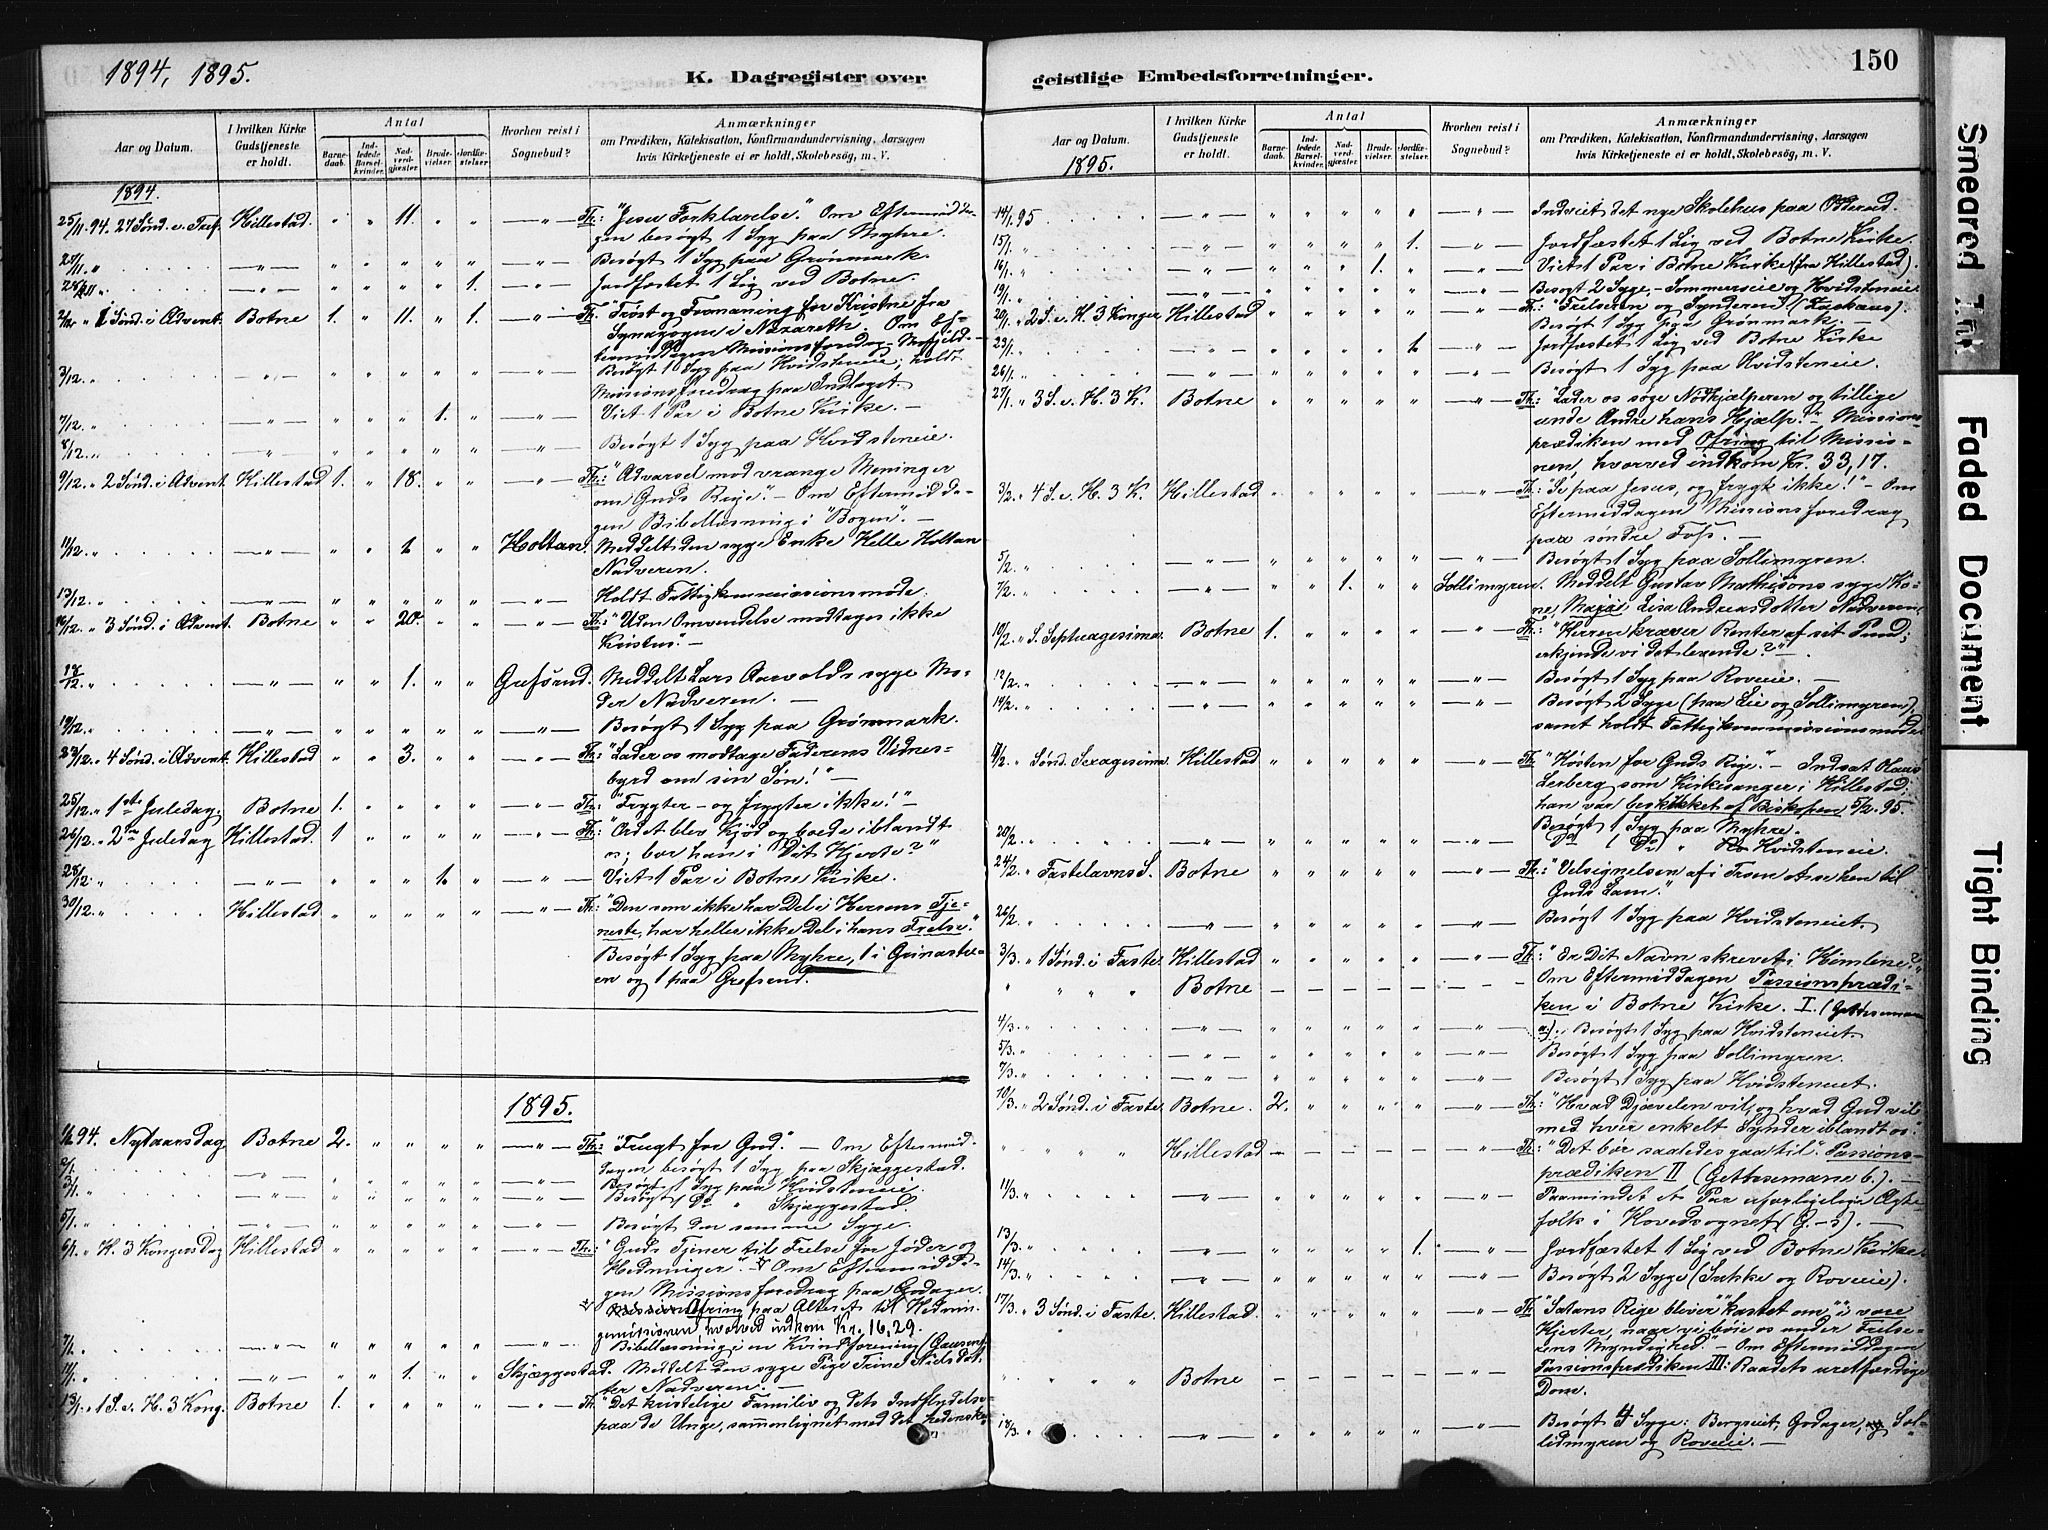 1894, 1895.
K. Dagregister over
Aar og Datum.
I hvilken Kirke Gudstjeneste er holdt.
Antal
Barnedaab.
Indledede Barselkvinder.
Nadverdgjæster.
Brudevielser.
Jordfæstelser.
Hvorhen reist i Sognebud?
Anmærkninger
om Prædiken, Katekisation, Konfirmandundervisning, Aarsagen
hvis Kirketjeneste ei er holdt, Skolebesøg, m. V.
1894.
25/11 94. 27 Sønd. e. Tref. Killestad. " " 11. " " — " — Th: "Jesu Forklarelse." Om Eftermidda-
gen besøgt 1 Syg paa Myhre.
" — " — " " " " " — " — Besøgt 1 Syg paa Grønmark.
" — " — " " " " 1. — " — Jordfæstet 1 Lig ved Botne.
2/12 " 1 Sønd. i Advent. Botne. 1. " 11. " 1. — " — Th: "Trøst og Formaning for Kristne fra
Synagogen i Nazareth. Om Ef-
termiddagen Missionsforedrag
3/12. " — " — Besøgt 1 Syg paa Hvidsteneie; holdt
Missionsforedrag paa Indlaget.
7/12 " — " — " " " 1. " — " — Viet 1 Par i Botne Kirke. —
8/12. " — " Besøgt 1 Syg paa Hvidsteneie.
9/12. " 2 Sønd. i Advent. Killestad 1. " 18. " " — " — Th: "Advarsel mod vrange Meninger
om Guds Rige." — Om Eftermidda-
gen Bibellæsning i "Bogen". —
11/12. " — " — " " 1. " " Holtan. Meddelt den syge Enke Helle Holtan
Nadveren.
13/12 " — " — " " " " " — " — Holdt Fattigkommissionsmøde.
16/12. " 3 Sønd. i Advent. Botne " " 20. " " — " — Th: "Uden Omvendelse modtages ikke
Kristus". —
18/12. " — " — " " 1. " " Grefsrud. Meddelt Lars Aarvolds syge Mo-
der Nadveren. —
19/12. " — " — " " " " " — " — Besøgt 1 Syg paa Grønmark.
23/12. " 4 Sønd. i Advent. Killestad " " 3. " " — " — Th: "Lader os modtage Faderens Vidnes-
byrd om sin Søn!" —
25/12. " 1ste Juledag. Botne 1. " " " " — " — Th: "Frygter — og frygter ikke!" —
26/12 " 2den Juledag Killestad. 1 " " " " — " — Th: "Ordet blev Kjød og boede iblandt
os; bor han i Dit Hjerte?"
28/12 " — " — " " " 1. " — " — Viet 1 Par i Botne Kirke.
30/12. " Killestad " " " " " — " — Th: "Den som ikke har Del i Herrens Tje-
neste, har heller ikke Del i hans Frelse."
Besøgt 1 Syg paa Myhre, 1 i
en og 1 paa Grefsrud.
1895.
1/1 94. Nytaarsdag Botne 2. " " " " — " — Th: "Frugt for Gud." — Om Eftermid-
dagen besøgt 1 Syg paa Skjæggestad.
2/1. — " — " " " " " — " — Besøgt 1 Syg paa Hvidsteneie.
3/1. " — " — " " " " " — " — Besøgt 1 Do " Skjæggestad.
5/1. " — " — " " " " " — " — Besøgt den samme Syge.
6/1. " H. 3 Kongersdag Killestad " " " " " — " — Th: "Guds Tjener til Frelse for Jøder og
Hedninger". Om Eftermidda-
gen Missionsforedrag paa Godager.
Ofring paa Alteret til Hednin-
gemissionen, hvorved indkom Kr. 16,29.
7/1. " — " — " " " " " — " — Bibellæsning i en Kvindeforening
11/1. " — " — " " 1. " " Skjæggestad. Meddelt den syge Pige Trine Nielsdat-
ter Nadveren. —
13/1. " 1 S. e. H. 3 Kong. Botne. 1. " " " " — " — Th: "Det kristelige Familiv og dets Indflydelse
paa de Unge, sammenlignet med det hedenske."
geistlige Embedsforretninger.
150
Aar og Datum.
1895.
I hvilken Kirke Gudstjeneste er holdt.
Antal
Barnedaab.
Indledede Barselkvinder.
Nadverdgjæster.
Brudevielser.
Jordfæstelser.
Hvorhen reist i Sognebud?
Anmærkninger
om Prædiken, Katekisation, Konfirmandundervisning, Aarsagen
hvis Kirketjeneste ei er holdt, Skolebesøg, m. V.
14/1 95. — " — " " " " " — " — Indviet det nye Skolehus paa
15/1. " — " — " " " " 1. — " — Jordfæstet 1 Lig ved Botne Kirke.
16/1. " — " — " " " 1. " — " — Viet 1 Par i Botne Kirke (fra Killestad).
19/1. " — " — " " " " " — " — Besøgt 2 Syge, — Sommerseie og Hvidsteneie
20/1. " 2 S. e. H. 3 Konger Killestad " " " " " — " — Th: "Frelseren og Synderen" (Zachæus).
Besøgt 1 Syg paa Grønmark. —
23/1. " " " " " 1. — " — Jordfæstet 1 Lig ved Botne Kirke
26/1. " " " " " " — " — Besøgt 1 Syg paa Hvidsteneie.
27/1. " 3 S. e. H. 3 K. Botne " " " " " — " — Th: "Lader os søge Nødhjælperen og tillige
unde Andre hans Hjælp." — Missions-
prædiken med Ofring til Missio-
nen, hvorved indkom Kr. 33,17.
3/2. " 4 S. e. H. 3 K. Killestad " " " " " — " — Th: "Se paa Jesus, og frygt ikke!" — Om
Eftermiddagen Missionsforedrag
paa søndre Fos. —
5/2. " — " — " " " " " — " — Besøgt 1 Syg paa Sollimyren.
7/2. " — " — " " 1. " " Sollimyren. Meddelt Gustav Mathisøns syge Ko-
ne, Lisa Andreasdatter Nadveren
10/2 " S. Septuagesima Botne 1. " " " " — " — Th: "Herren kræver Renter af sit Pund;
erkjende vi det levende?" —
12/2. " — " — " " " " " — " — Besøgt 1 Syg paa Roveie. —
14/2. " — " — " " " " " — " — Besøgt 2 Syge (paa Lie og Sollimyren),
samt holdt Fattigkommissionsmøde.
" Sønd. Sexagesima. Killestad " " " " " — " — Th: "Høsten for Guds Rige." — Indsat
Lerberg som Kirkesanger i Killestad;
han var beskikket af Biskopen 5/2. 95.
20/2. " — " — " " " " " — " — Besøgt 1 Syg paa Myhre.
Do ( Do " Hvidsteneie.
24/2. " Fastelavns S. Botne " " " " " — " — Th: "Velsignelsen af i Troen at se hen til
Guds Lam."
26/2. " — " — " " " " " — " — Besøgt 1 Syg paa Hvidsteneiet.
3/3. " 1 Sønd. i Faste. Killestad " " " " " — " — Th: "Er Dit Navn skrevet i Himlene?"
" " " " Botne — — — — — — " — Om Eftermiddagen Passionsprædi-
ken i Botne Kirke. I. (Gethsemane
4/3. " — " — " " " " " — " — a). Besøgt 1 Syg paa Hvidsteneiet.
5/3. " — " — " " " " " — " — Besøgt 1 Syg paa Sollimyren.
7/3. " — " — " " " " " — " — Besøgt 1 Syg paa Hvidsteneiet.
10/3. " 2 Sønd. i Faste. Botne. 2. " " " " — " — Th: "Hvad Djævelen vil, og hvad Gud vil
med hver enkelt Synder iblandt os".
" " " " Killestad — — — — — — " — Th: "Det bør saaledes gaa til". Passions-
prædiken II (Getsemane b.). —
11/3. " — " — " " " " " — " — Paamindet et Par Ægte-
folk i Hovedsognet (G.–s). —
13/3. " — " — " " " " 1. — " — Jordfæstet 1 Lig ved Botne Kirke.
14/3. " — " — " " " " " — " — Besøgt 2 Syge
17/3. " 3 Sønd. i Faste. Killestad. " " " " " — " — Th: "Satans Rige bliver "kastet om" i vore
Hjerter, naar vi bøie os under Frelse-
rens Myndighed." — Om Eftermiddagen
" " " " Botne — — — — — — " — Passionsprædiken III: Raadets uretfærdige
Dom.
18/3. " — " — " — Besøgt 4 Syge: Bergseiet, Godager, og Sol-
lidmyren og Roveie. —
Smeared Ink
Faded Document
Tight Binding